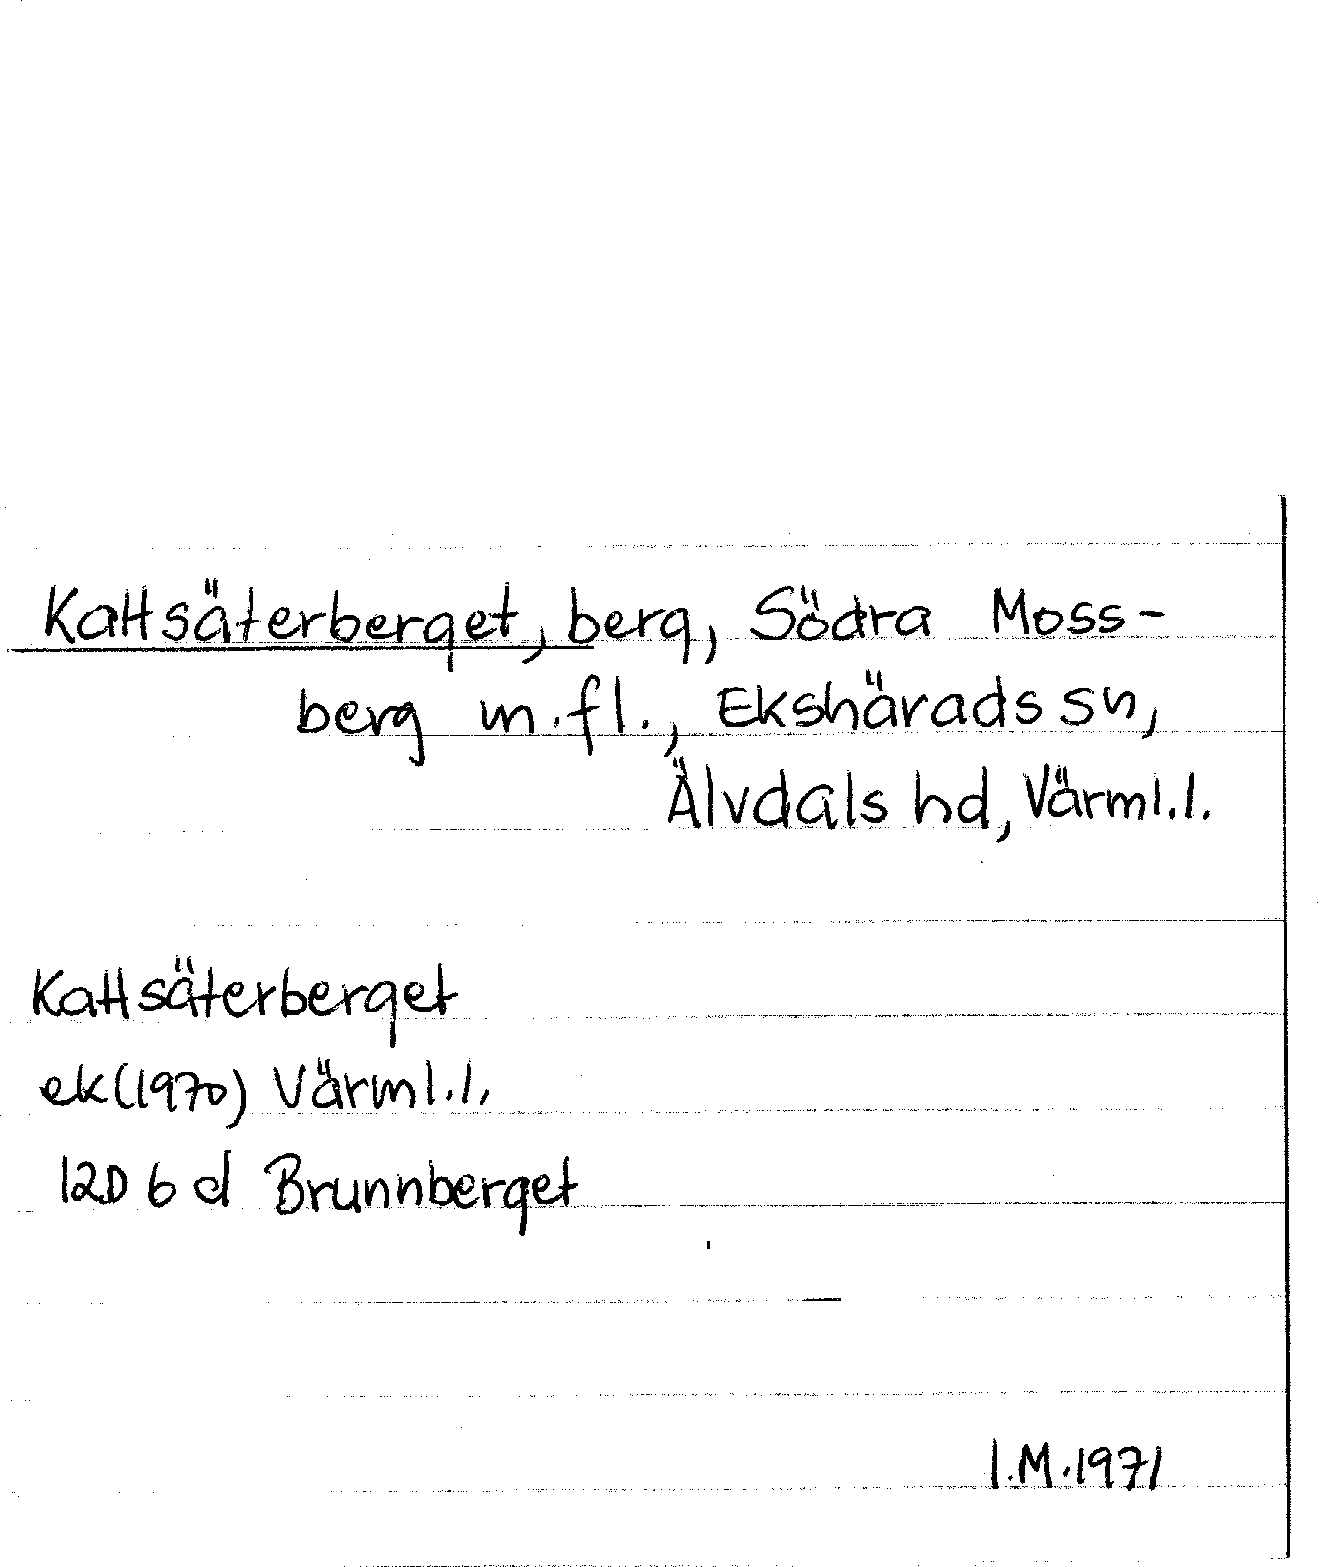 Kattsäterberget, berg, Södra Moss-
berg m.fl., Ekshärads sn,
Älvdals hd, Värml.l.
Kattsäterberget
ek(1970) Värml.l.
12D 6 d Brunnberget
I.M.1971